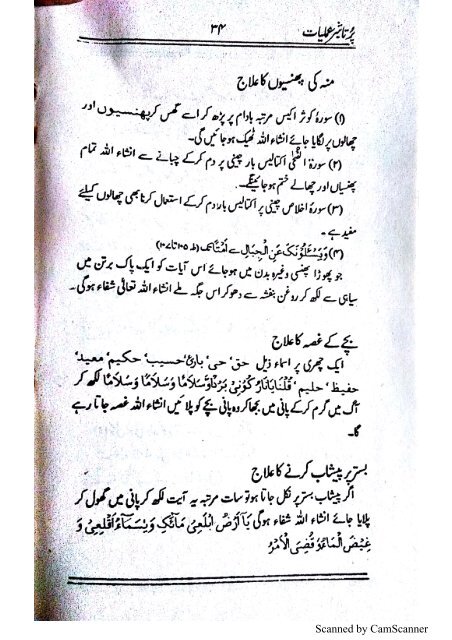 پُرتاثیر عملیات
۳۴
منہ کی پھنسیوں کا علاج
(۱) سورۂ کوثر اکیس مرتبہ بادام پر پڑھ کر اسے گھس کر پھنسیوں اور
چھالوں پر لگایا جائے انشاء اللہ ٹھیک ہوجائیں گی۔
(۲) سورۃ الضُّحیٰ اکتالیس بار چینی پر دم کرکے چبانے سے انشاء اللہ تمام
پھنسیاں اور چھالے ختم ہوجائینگے۔
(۳) سورۃ اخلاص چینی پر اکتالیس بار دم کرکے استعمال کرنا بھی چھالوں کیلئے
مفید ہے۔
(۴) وَیَسْئَلُوْنَکَ عَنِ الْجِبَالِ سے اَمْتًا تک (طہٰ ۱۰۵ تا ۱۰۷)
جو پھوڑا پھنسی وغیرہ بدن میں ہوجائے اس آیات کو ایک پاک برتن میں
سیاہی سے لکھ کر روغن بنفشہ سے دھو کر اس جگہ ملے انشاء اللہ تعالیٰ شفاء ہوگی۔
بچے کے غصہ کا علاج
ایک چھری پر اسماء ذیل حق، حی، باری، حسیب، حکیم، معید،
حفیظ، حلیم، قُلْنَا یَانَارُ کُوْنِیْ بَرْدًا وَسَلَامًا وَسَلَامًا وَسَلَامًا لکھ کر
آگ میں گرم کرکے پانی میں بجھا کر وہ پانی بچے کو پلائیں انشاء اللہ غصہ جاتا رہے
گا۔
بستر پر پیشاب کرنے کا علاج
اگر پیشاب بستر پر نکل جاتا ہو تو سات مرتبہ یہ آیت لکھ کر پانی میں گھول کر
پلایا جائے انشاء اللہ شفاء ہوگی یَآ اَرْضُ ابْلَعِیْ مَائَکِ وَیٰسَمَآءُ اَقْلِعِیْ وَ
غِیْضَ الْمَاءُ وَ قُضِیَ الْاَمْرُ
Scanned by CamScanner